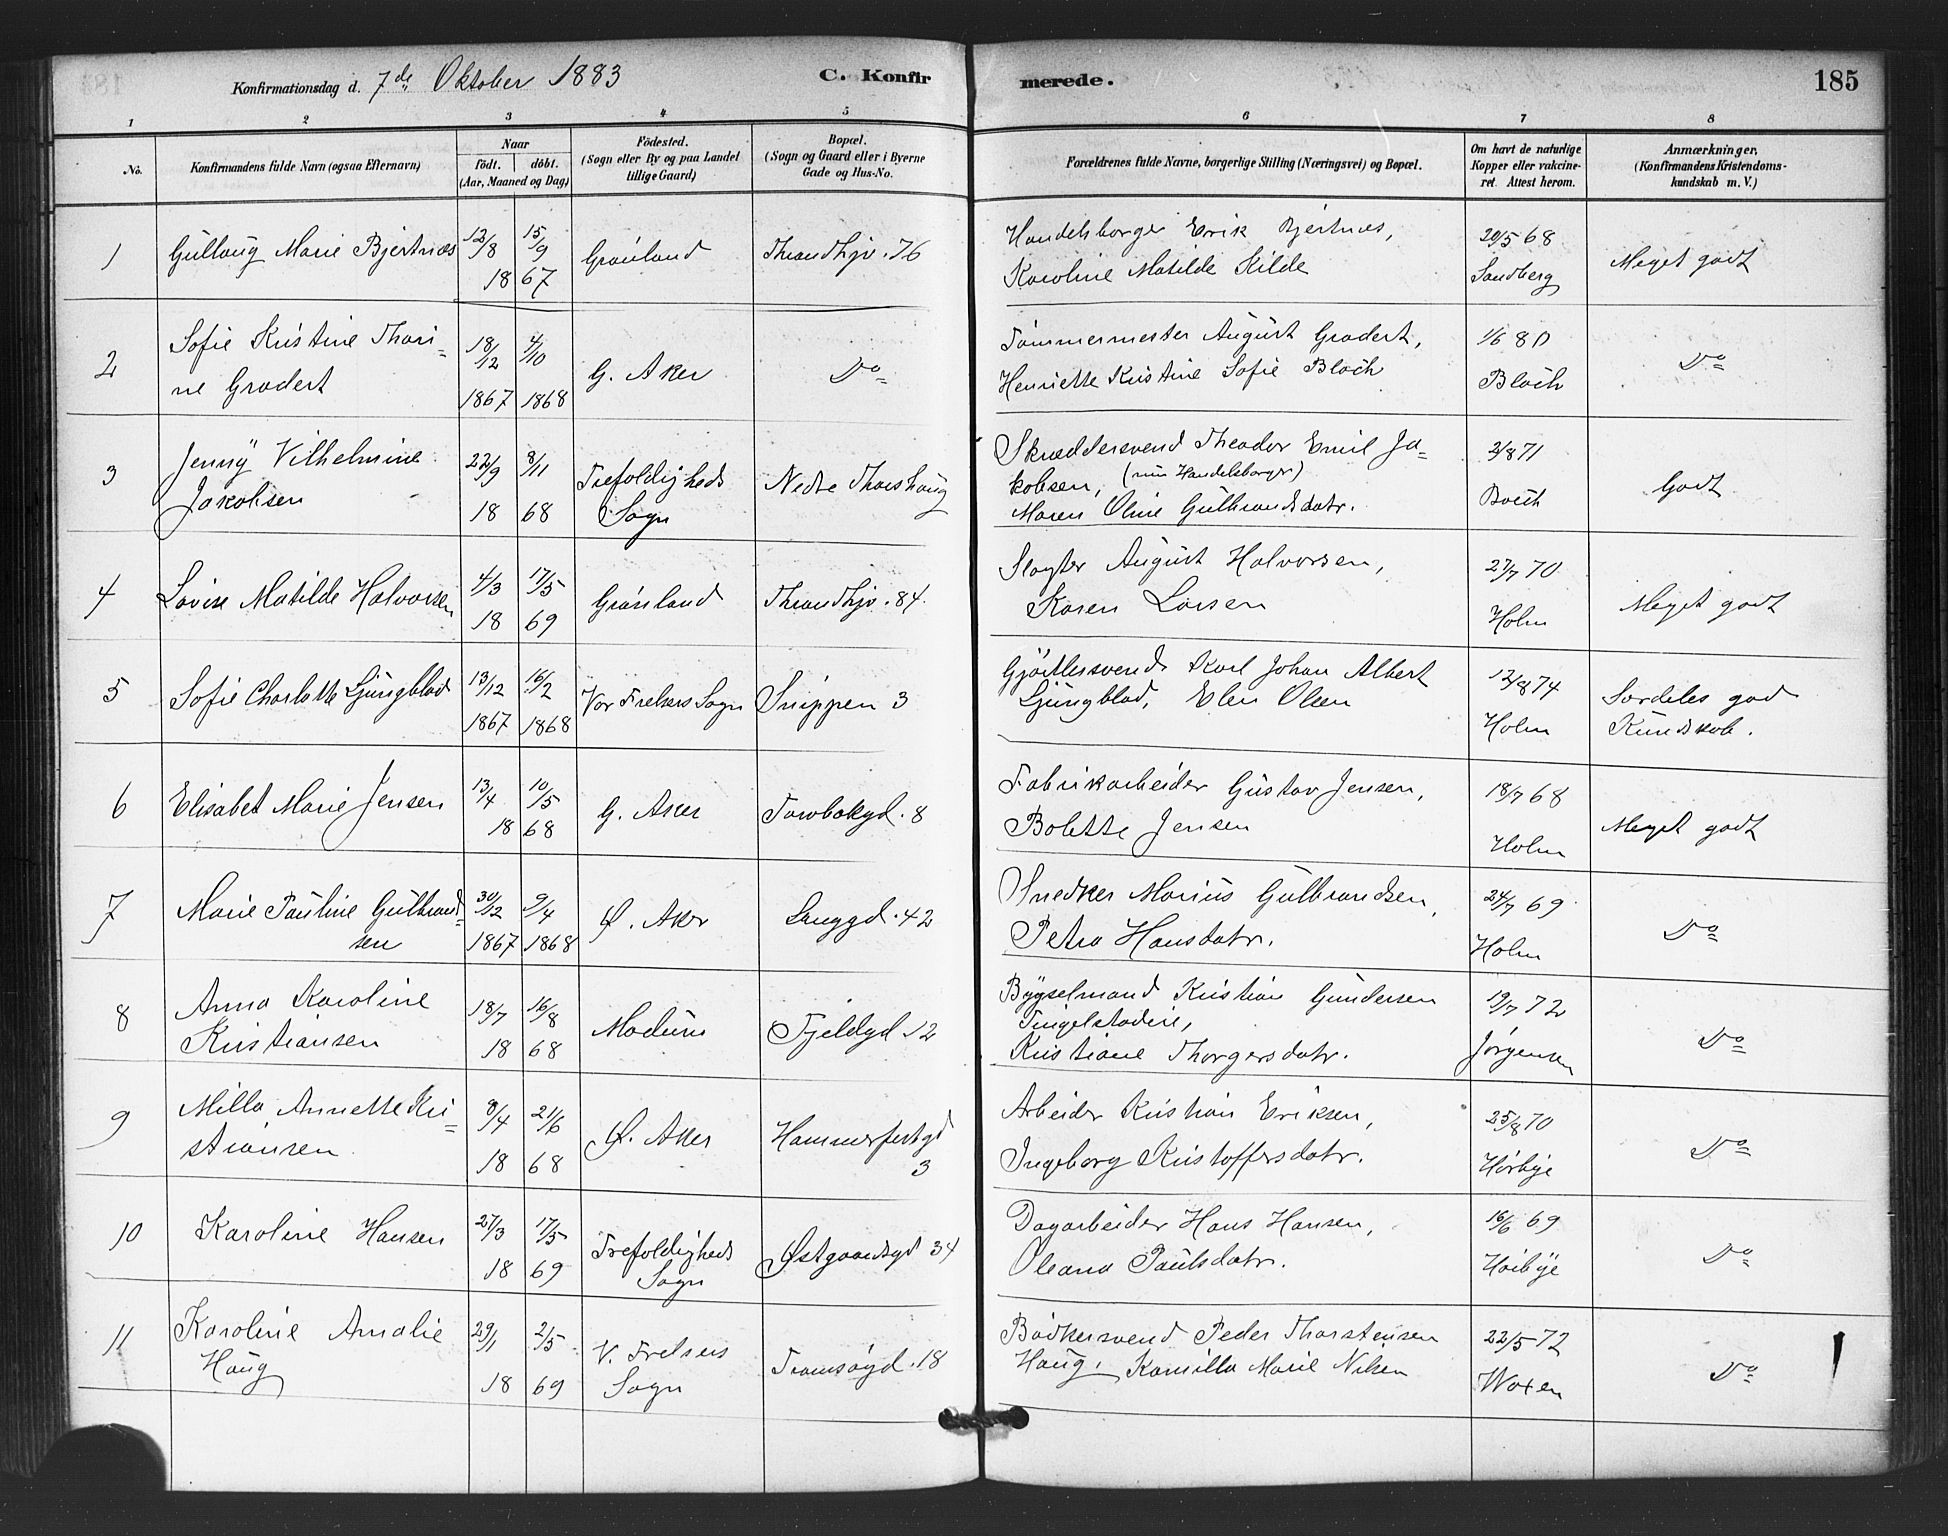 Konfirmationsdag d. 7de Oktober 1883 C. Konfirmerede. 185
1 2 3 4 5 6 7 8
No. Konfirmandens fulde Navn (ogsaa Efternavn) Naar födt. döbt. (Aar, Maaned og Dag) Födested. (Sogn eller By og paa Landet tillige Gaard) Bopæl. (Sogn og Gaard eller i Byerne Gade og Hus-No. Forældrenes fulde Navne, borgerlige Stilling (Næringsvei) og Bopæl. Om havt de naturlige Kopper eller vakcineret. Attest herom. Anmærkninger, (Konfirmandens Kristendomskundskab m. V.)
1 Gullaug Marie Bjertnæs 12/8 15/9 1867 Grønland Throndhjv. 76 Handelsborger Erik Bjertnæs, Karoline Matilde Hilde 20/5 68 Sandberg Meget godt
2 Sofie Kristine Thorine Grodert 18/12 1867 4/10 1868 G. Aker Do Tømmermester August Grodert, Henriette Kristine Sofie Bloch 1/6 80 Bloch Do
3 Jenny Vilhelmine Jakobsen 22/9 8/11 1868 Trefoldigheds Sogn Nedre Thorshaug Skræddersvend Theodor Emil Jakobsen, (nu Handelsborger) Maren Oline Gulbrandsdatr. 2/8 71 Godt
4 Lovise Matilde Halvorsen 4/3 17/5 1869 Grønland Throndhjv. 84. Slagter August Halvorsen, Karen Larsen 27/7 70 Holm Meget godt
5 Sofie Charlotte Ljungblad 13/12 1867 16/2 1868 Vor Frelsers Sogn Snippen 3 Gjørtlersvend Karl Johan Albert Ljungblad, Elen Olsen 12/8 74 Holm Særdeles god Kundskab.
6 Elisabet Marie Jensen 13/4 10/5 1868 G. Aker Torvbakgd. 8 Fabrikarbeider Gustav Jensen, Bolette Jensen 18/7 68 Holm Meget godt
7 Marie Pauline Gulbrandsen 30/12 1867 9/4 1868 Ø. Aker Langgd. 42 Snedker Marius Gulbrandsen, Petra Hansdatr. 24/7 69 Holm Do
8 Anna Karoline Kristiansen 18/7 16/8 1868 Modum Fjeldgd 12 Bygselmand Kristian Gundersen Tingelstadeie, Kristiane Thorgersdatr. 19/7 72 Jørgensen Do
9 Milla Annette Kristiansen 8/4 21/6 1868 Ø. Aker Hammerfestgd 3 Arbeider Kristian Eriksen, Ingeborg Kristoffersdatr. 25/8 70 Hørbye Do
10 Karoline Hansen 27/3 17/5 1869 Trefoldigheds Sogn Østgaardsgd 34 Dagarbeider Hans Hansen, Oleana Paulsdatr. 16/6 69 Høibye Do
11 Karoline Amalie Haug 29/1 2/5 1869 V. Frelsers Sogn Tromsøgd. 18 Bødkersvend Peder Thorstensen Haug, Kamilla Marie Nilsen 22/5 72 Woxen Do